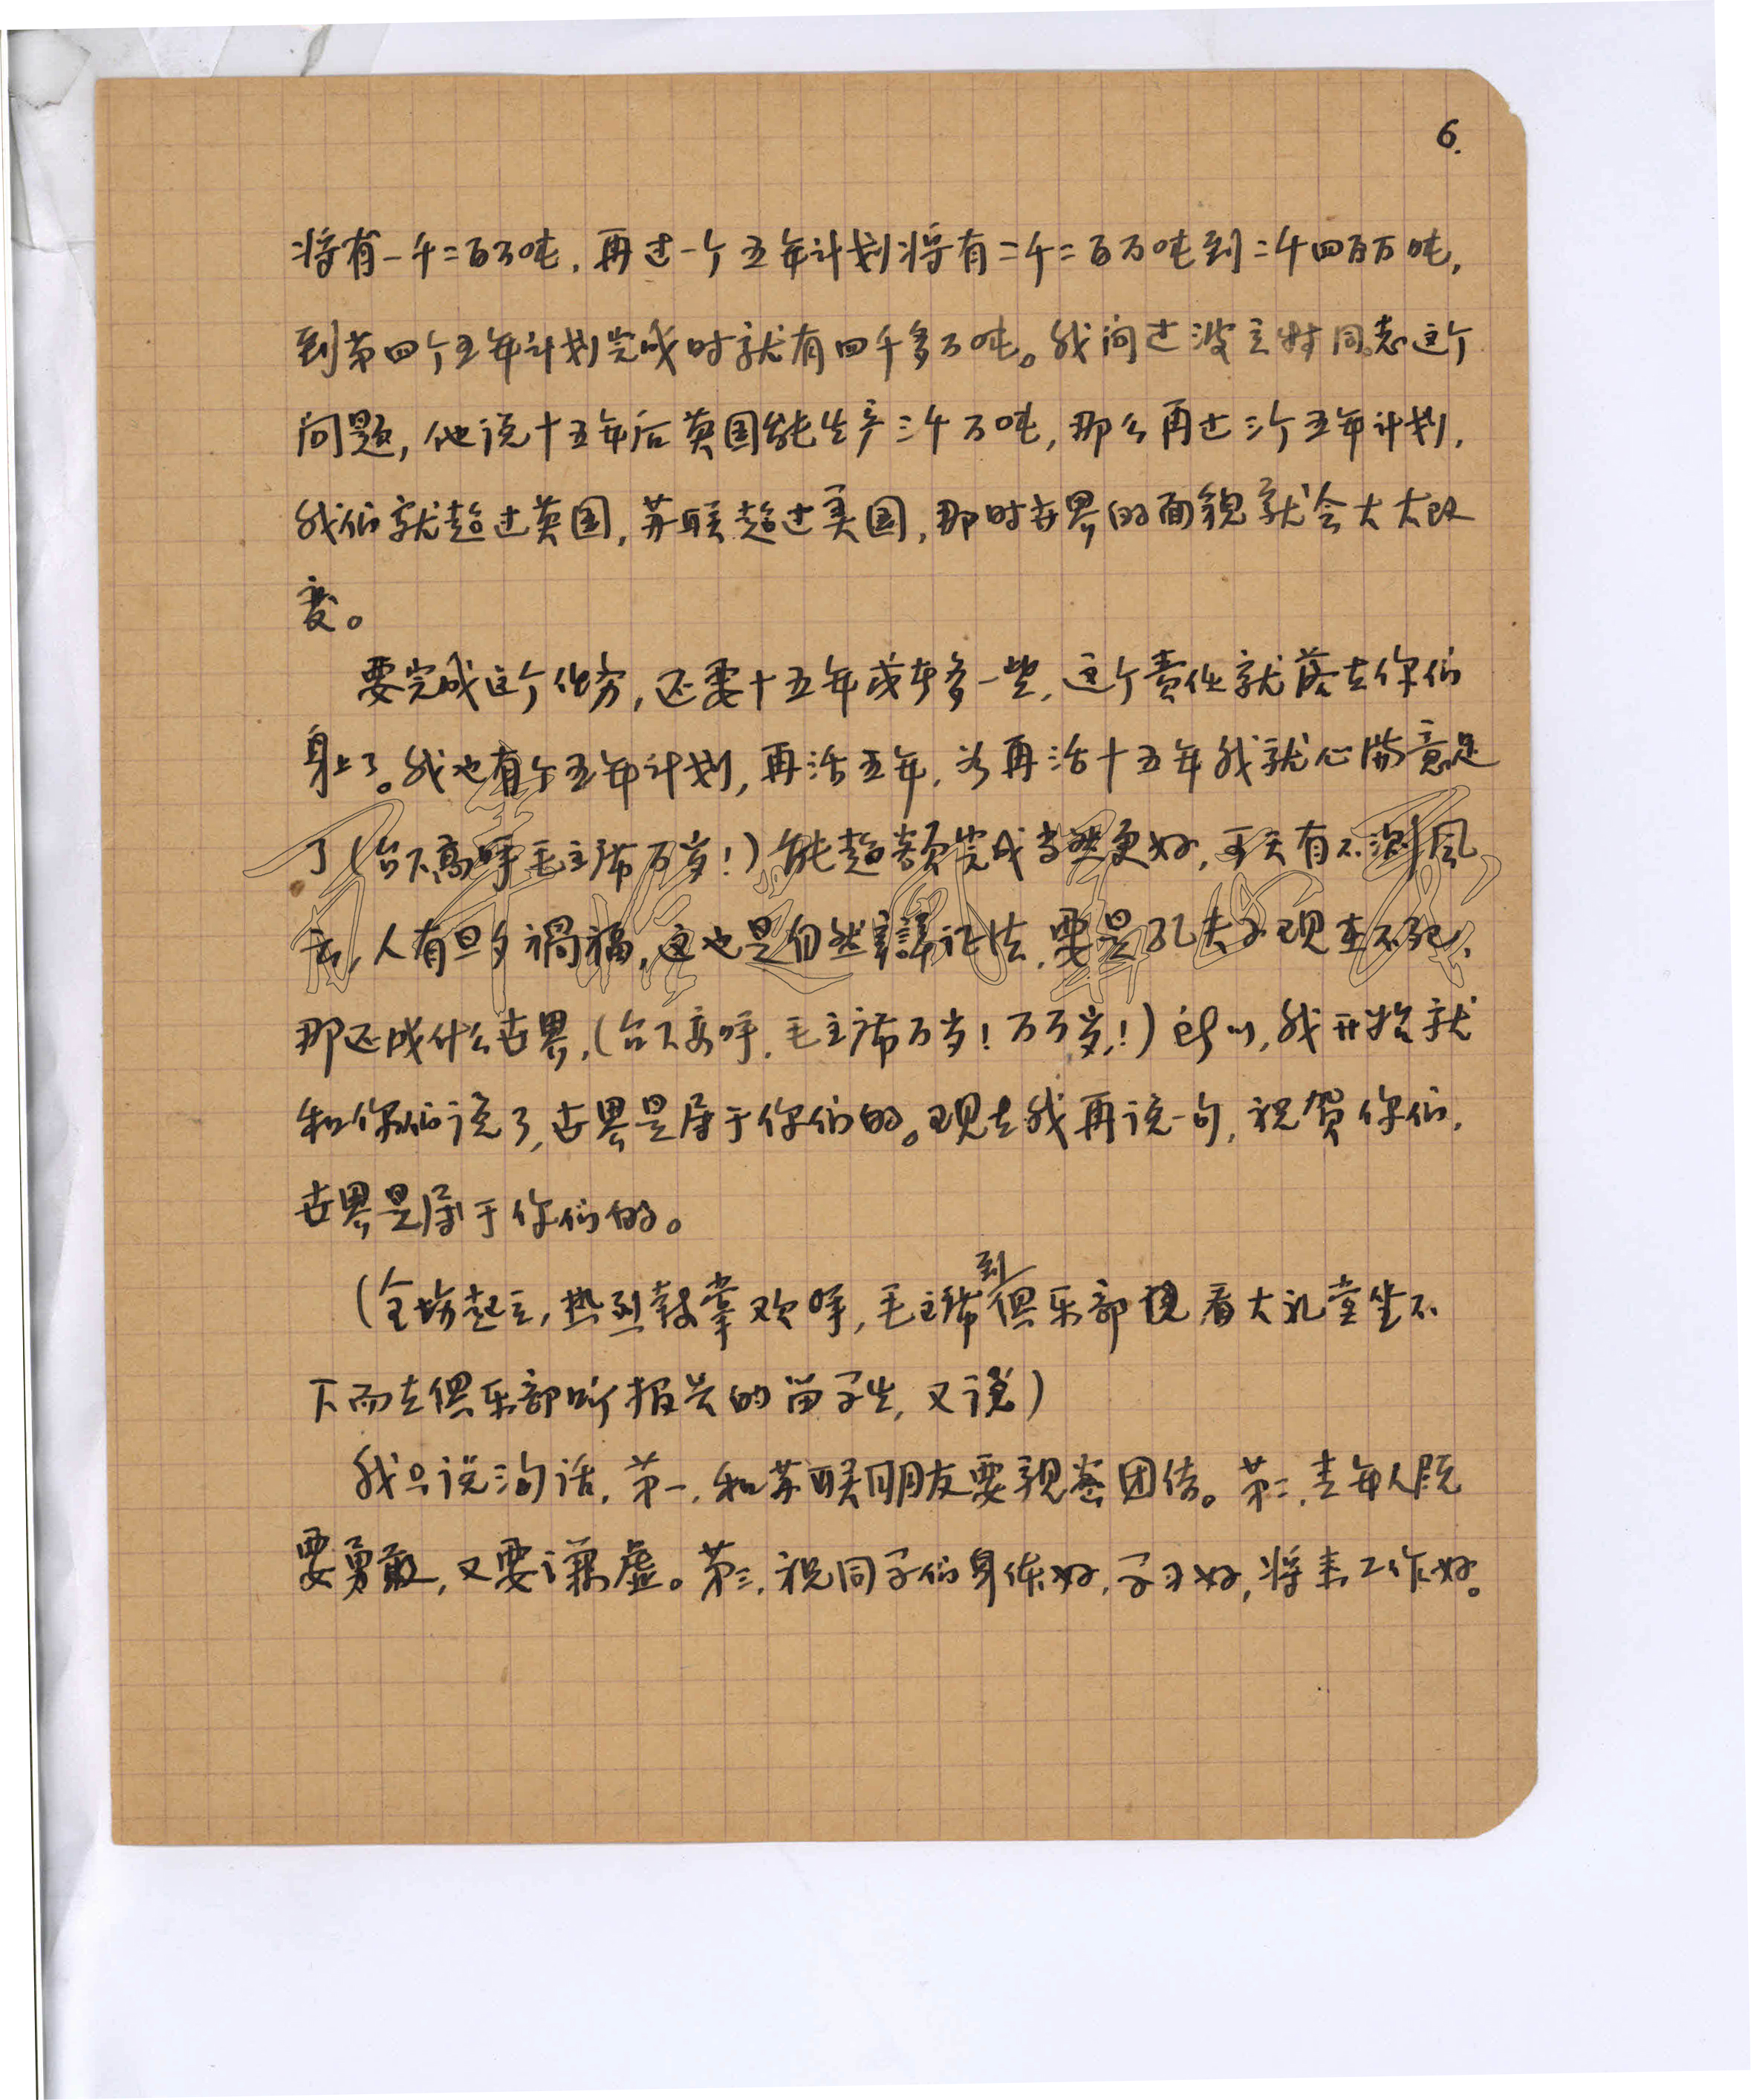 6.
将有一千二百万吨，再过一个五年计划将有二千二百万吨到二千四百万吨，
到第四个五年计划完成时就有四千多万吨。我问过波立特同志这个
问题，他说十五年后英国能生产三千万吨，那么再过三个五年计划，
我们就超过英国，苏联超过美国，那时世界的面貌就会大大改
变。
要完成这个任务，还要十五年或者多一些，这个责任就落在你们
身上了。我也有个五年计划，再活五年，若再活十五年我就心满意足
了（台下高呼毛主席万岁！）能超额完成当然更好，可天有不测风
云，人有旦夕祸福，这也是自然辯证法，要是孔夫子现在不死，
那还成什么世界，（台下高呼，毛主席万岁！万万岁！）所以，我开始就
和你们说了，世界是属于你们的。现在我再说一句，祝贺你们，
世界是属于你们的。
（全场起立，热烈鼓掌欢呼，毛主席到俱乐部现看大礼堂坐不
下而在俱乐部听报告的留学生，又说）
我只说三句话，第一，和苏联朋友要亲密团结。第二，青年人既
要勇敢，又要谦虚。第三，祝同学们身体好，学习好，将来工作好。